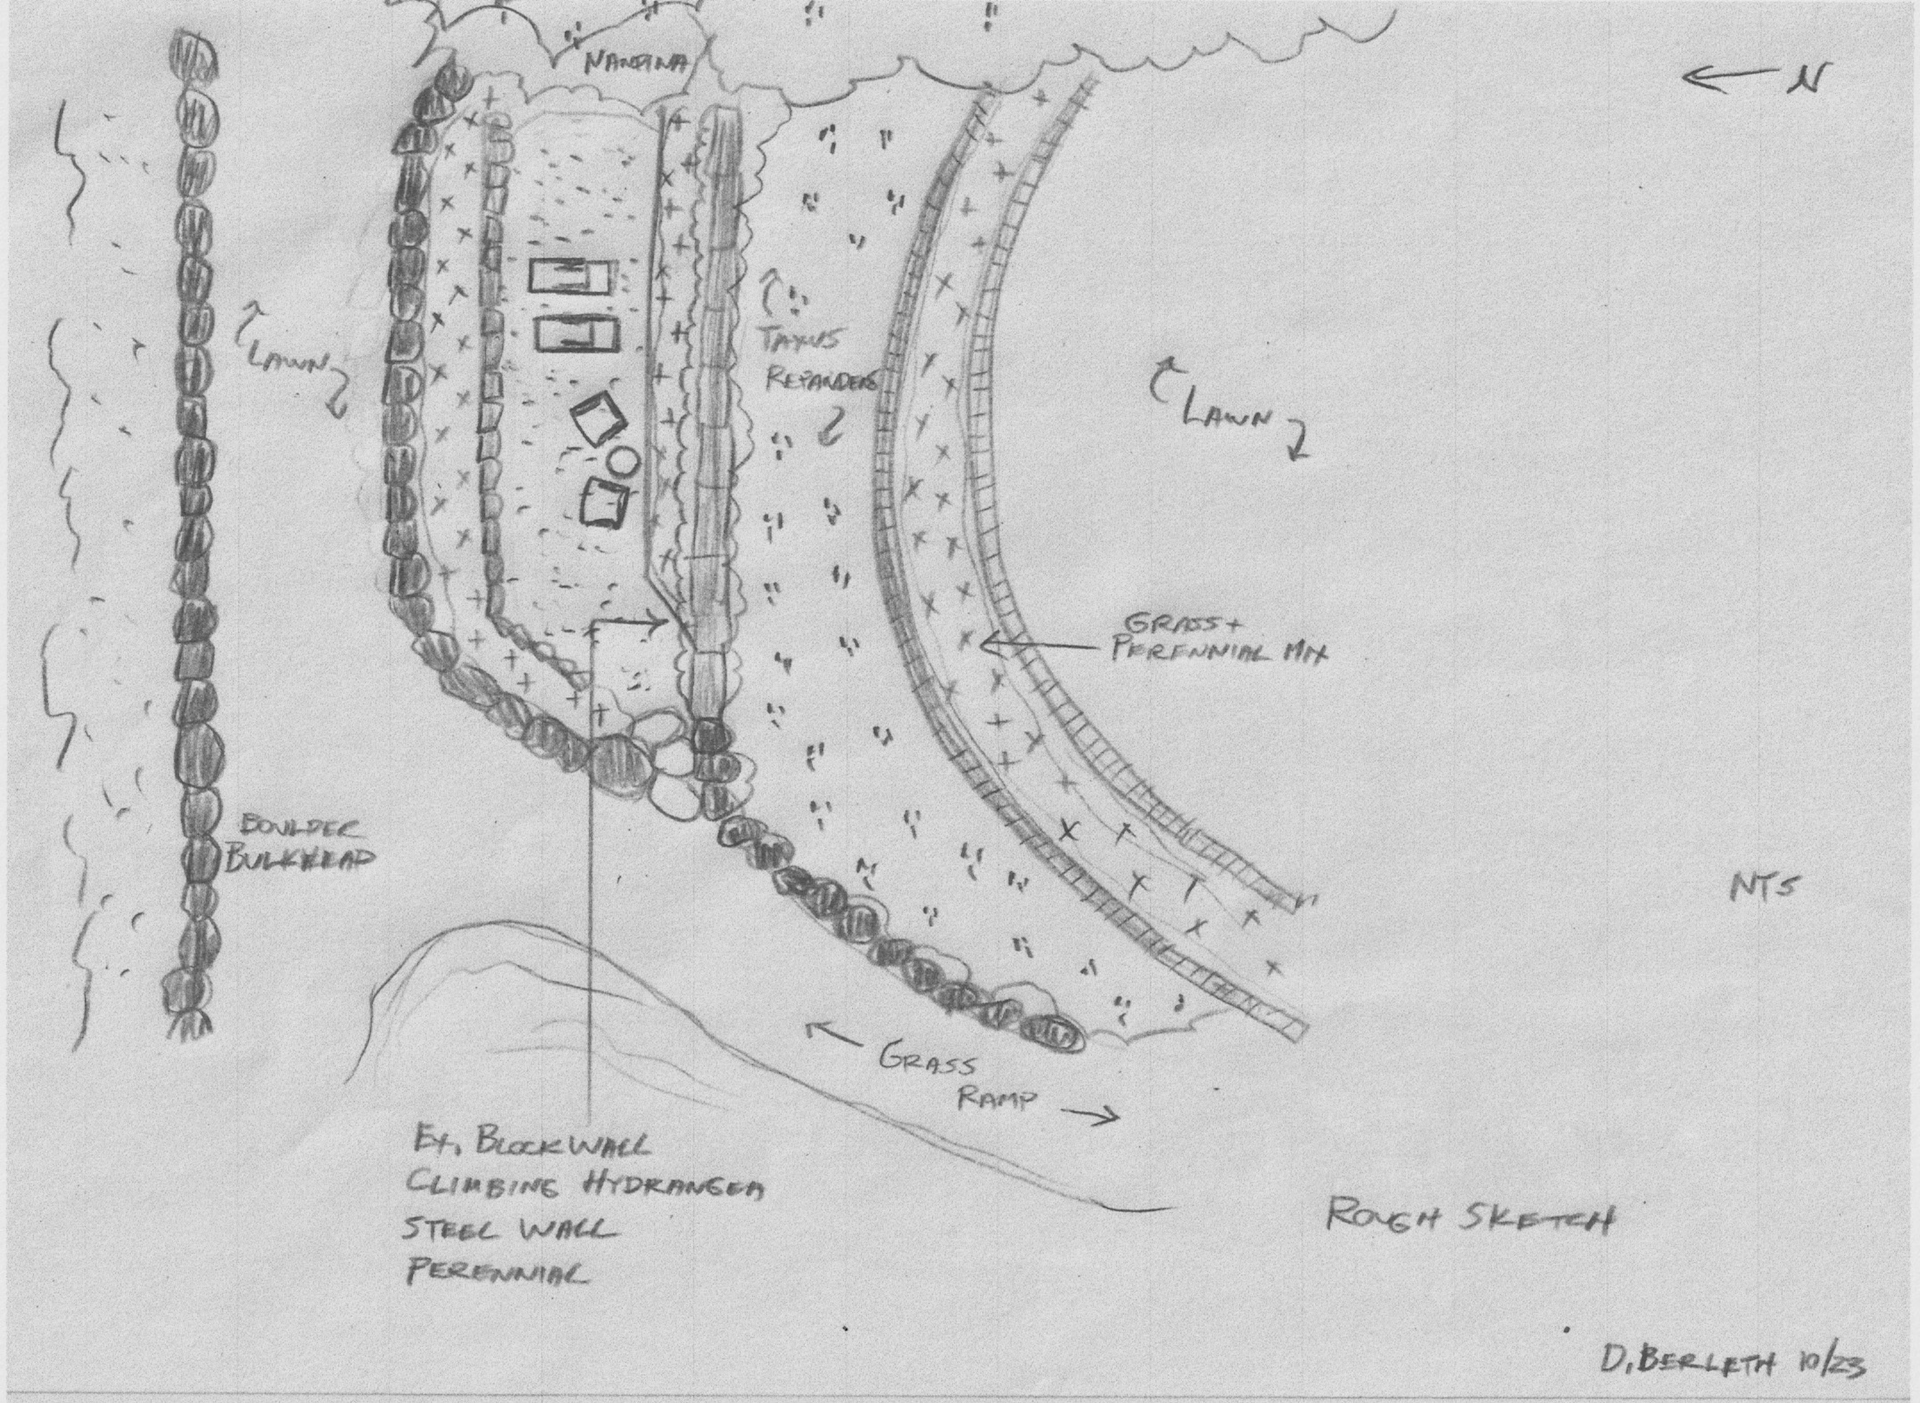 NANDINA
← N
LAWN
TAXUS
REPANDENS
LAWN
GRASS +
PERENNIAL MIX
BOULDER
BULKHEAD
NTS
GRASS
RAMP
EX. BLOCK WALL
CLIMBING HYDRANGEA
STEEL WALL
PERENNIAL
ROUGH SKETCH
D. BERLETH 10/23